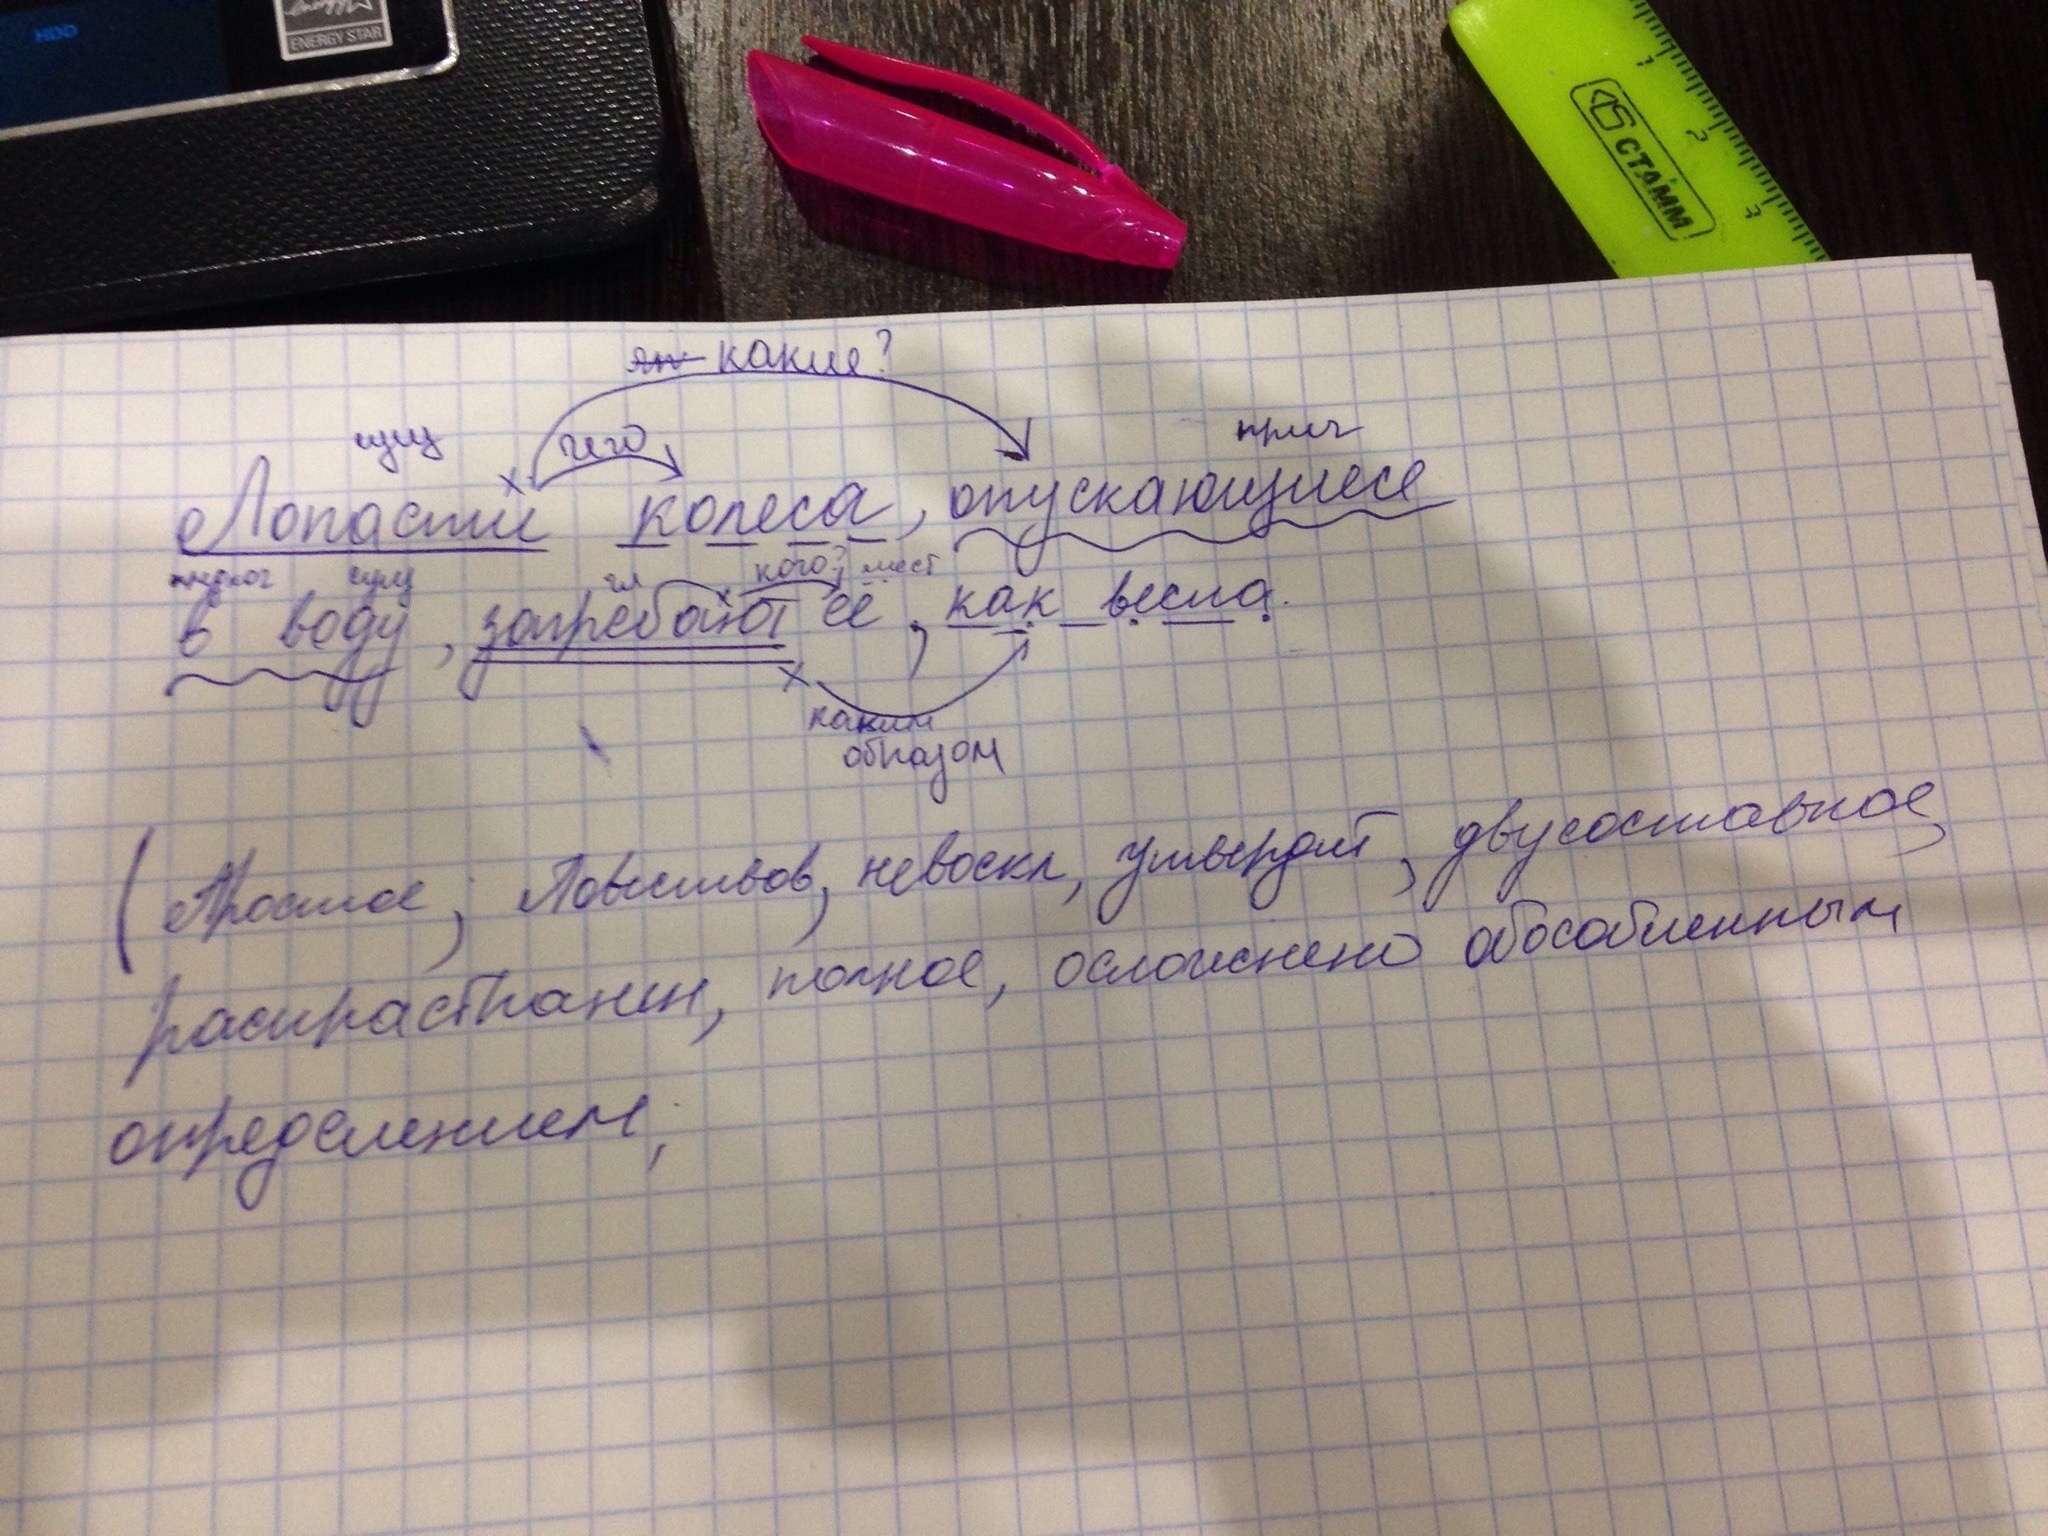 HDD
ENERGY STAR
СТАММ
1
2
3
какие?
сущ чего прич
Лопасти колеса, опускающиеся
предлог сущ гл кого? мест
в воду, загребают её, как весла.
каким
образом
(Простое; Повествов, невоскл, утвердит, двусоставное,
распрастранен, полное, осложнено обособленным
определением,